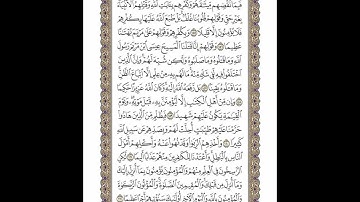 فَبِمَا نَقْضِهِم مِّيثَٰقَهُمْ وَكُفْرِهِم بِـَٔايَٰتِ ٱللَّهِ وَقَتْلِهِمُ ٱلْأَنۢبِيَآءَ
بِغَيْرِ حَقٍّ وَقَوْلِهِمْ قُلُوبُنَا غُلْفٌۢ بَلْ طَبَعَ ٱللَّهُ عَلَيْهَا بِكُفْرِهِمْ
فَلَا يُؤْمِنُونَ إِلَّا قَلِيلًا ١٥٥ وَبِكُفْرِهِمْ وَقَوْلِهِمْ عَلَىٰ مَرْيَمَ بُهْتَٰنًا
عَظِيمًا ١٥٦ وَقَوْلِهِمْ إِنَّا قَتَلْنَا ٱلْمَسِيحَ عِيسَى ٱبْنَ مَرْيَمَ رَسُولَ ٱللَّهِ
وَمَا قَتَلُوهُ وَمَا صَلَبُوهُ وَلَٰكِن شُبِّهَ لَهُمْ ۚ وَإِنَّ ٱلَّذِينَ
ٱخْتَلَفُوا۟ فِيهِ لَفِى شَكٍّ مِّنْهُ ۚ مَا لَهُم بِهِۦ مِنْ عِلْمٍ إِلَّا ٱتِّبَاعَ ٱلظَّنِّ ۚ
وَمَا قَتَلُوهُ يَقِينًۢا ١٥٧ بَل رَّفَعَهُ ٱللَّهُ إِلَيْهِ ۚ وَكَانَ ٱللَّهُ عَزِيزًا حَكِيمًا
١٥٨ وَإِن مِّنْ أَهْلِ ٱلْكِتَٰبِ إِلَّا لَيُؤْمِنَنَّ بِهِۦ قَبْلَ مَوْتِهِۦ ۖ وَيَوْمَ
ٱلْقِيَٰمَةِ يَكُونُ عَلَيْهِمْ شَهِيدًا ١٥٩ فَبِظُلْمٍ مِّنَ ٱلَّذِينَ هَادُوا۟
حَرَّمْنَا عَلَيْهِمْ طَيِّبَٰتٍ أُحِلَّتْ لَهُمْ وَبِصَدِّهِمْ عَن سَبِيلِ ٱللَّهِ
كَثِيرًا ١٦٠ وَأَخْذِهِمُ ٱلرِّبَوٰا۟ وَقَدْ نُهُوا۟ عَنْهُ وَأَكْلِهِمْ أَمْوَٰلَ
ٱلنَّاسِ بِٱلْبَٰطِلِ ۚ وَأَعْتَدْنَا لِلْكَٰفِرِينَ مِنْهُمْ عَذَابًا أَلِيمًا ١٦١ لَّٰكِنِ
ٱلرَّٰسِخُونَ فِى ٱلْعِلْمِ مِنْهُمْ وَٱلْمُؤْمِنُونَ يُؤْمِنُونَ بِمَآ أُنزِلَ إِلَيْكَ
وَمَآ أُنزِلَ مِن قَبْلِكَ ۚ وَٱلْمُقِيمِينَ ٱلصَّلَوٰةَ ۚ وَٱلْمُؤْتُونَ ٱلزَّكَوٰةَ
وَٱلْمُؤْمِنُونَ بِٱللَّهِ وَٱلْيَوْمِ ٱلْـَٔاخِرِ أُو۟لَٰٓئِكَ سَنُؤْتِيهِمْ أَجْرًا عَظِيمًا ١٦٢